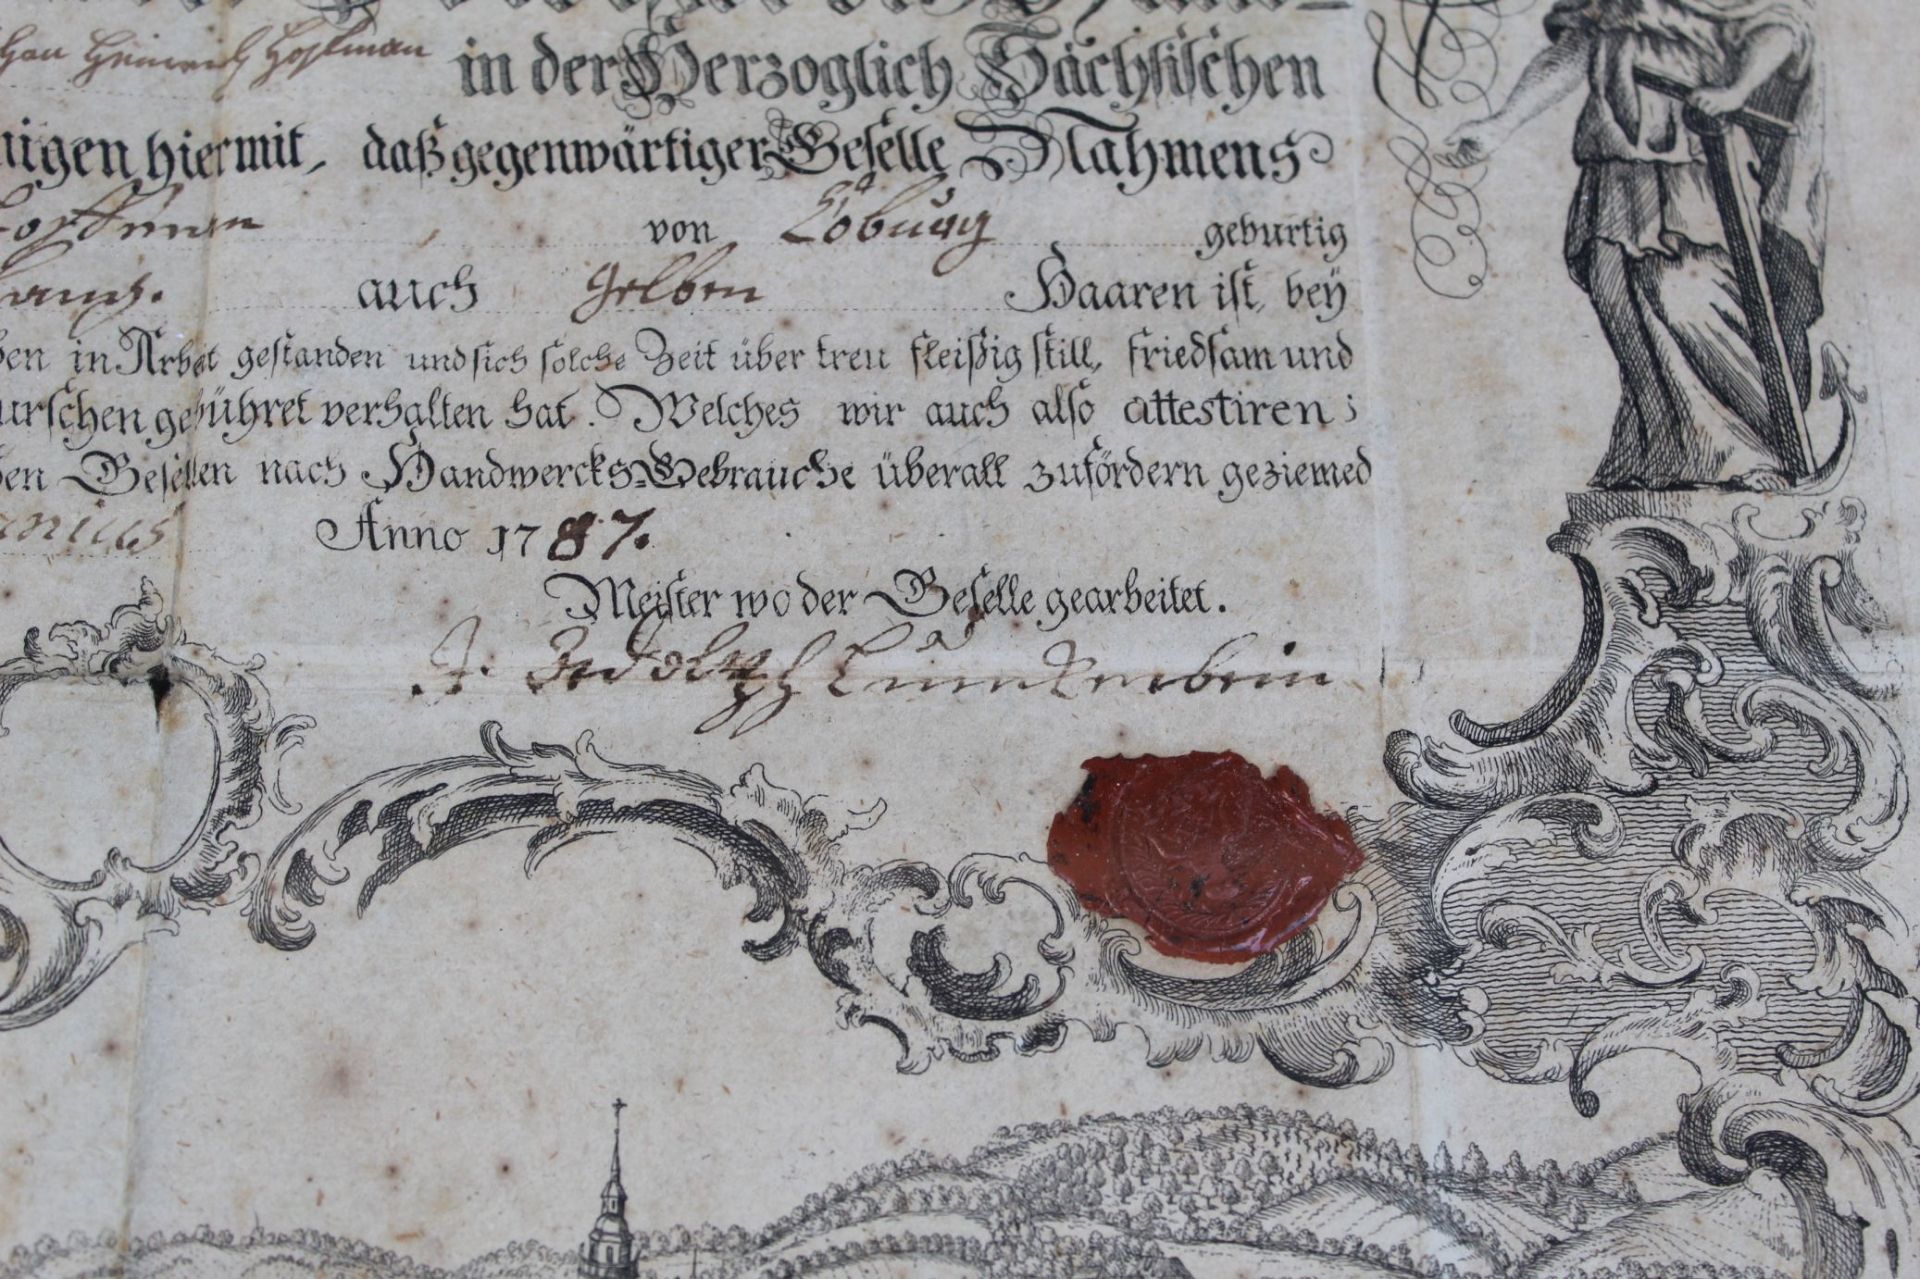 Heinrich Hoffman in der Herzoglich Sächsischen
hiermit, daß gegenwärtiger Geselle Nahmens
von Coburg geburtig
auch gelben Haaren ist, bey
in Arbeit gestanden und sich solche Zeit über treu fleißig still, friedsam und
gebühret verhalten hat. Welches wir auch also attestiren;
Gesellen nach Handwercks-Gebrauche überall zufördern geziemed
Anno 1787.
Meister wo der Geselle gearbeitet.